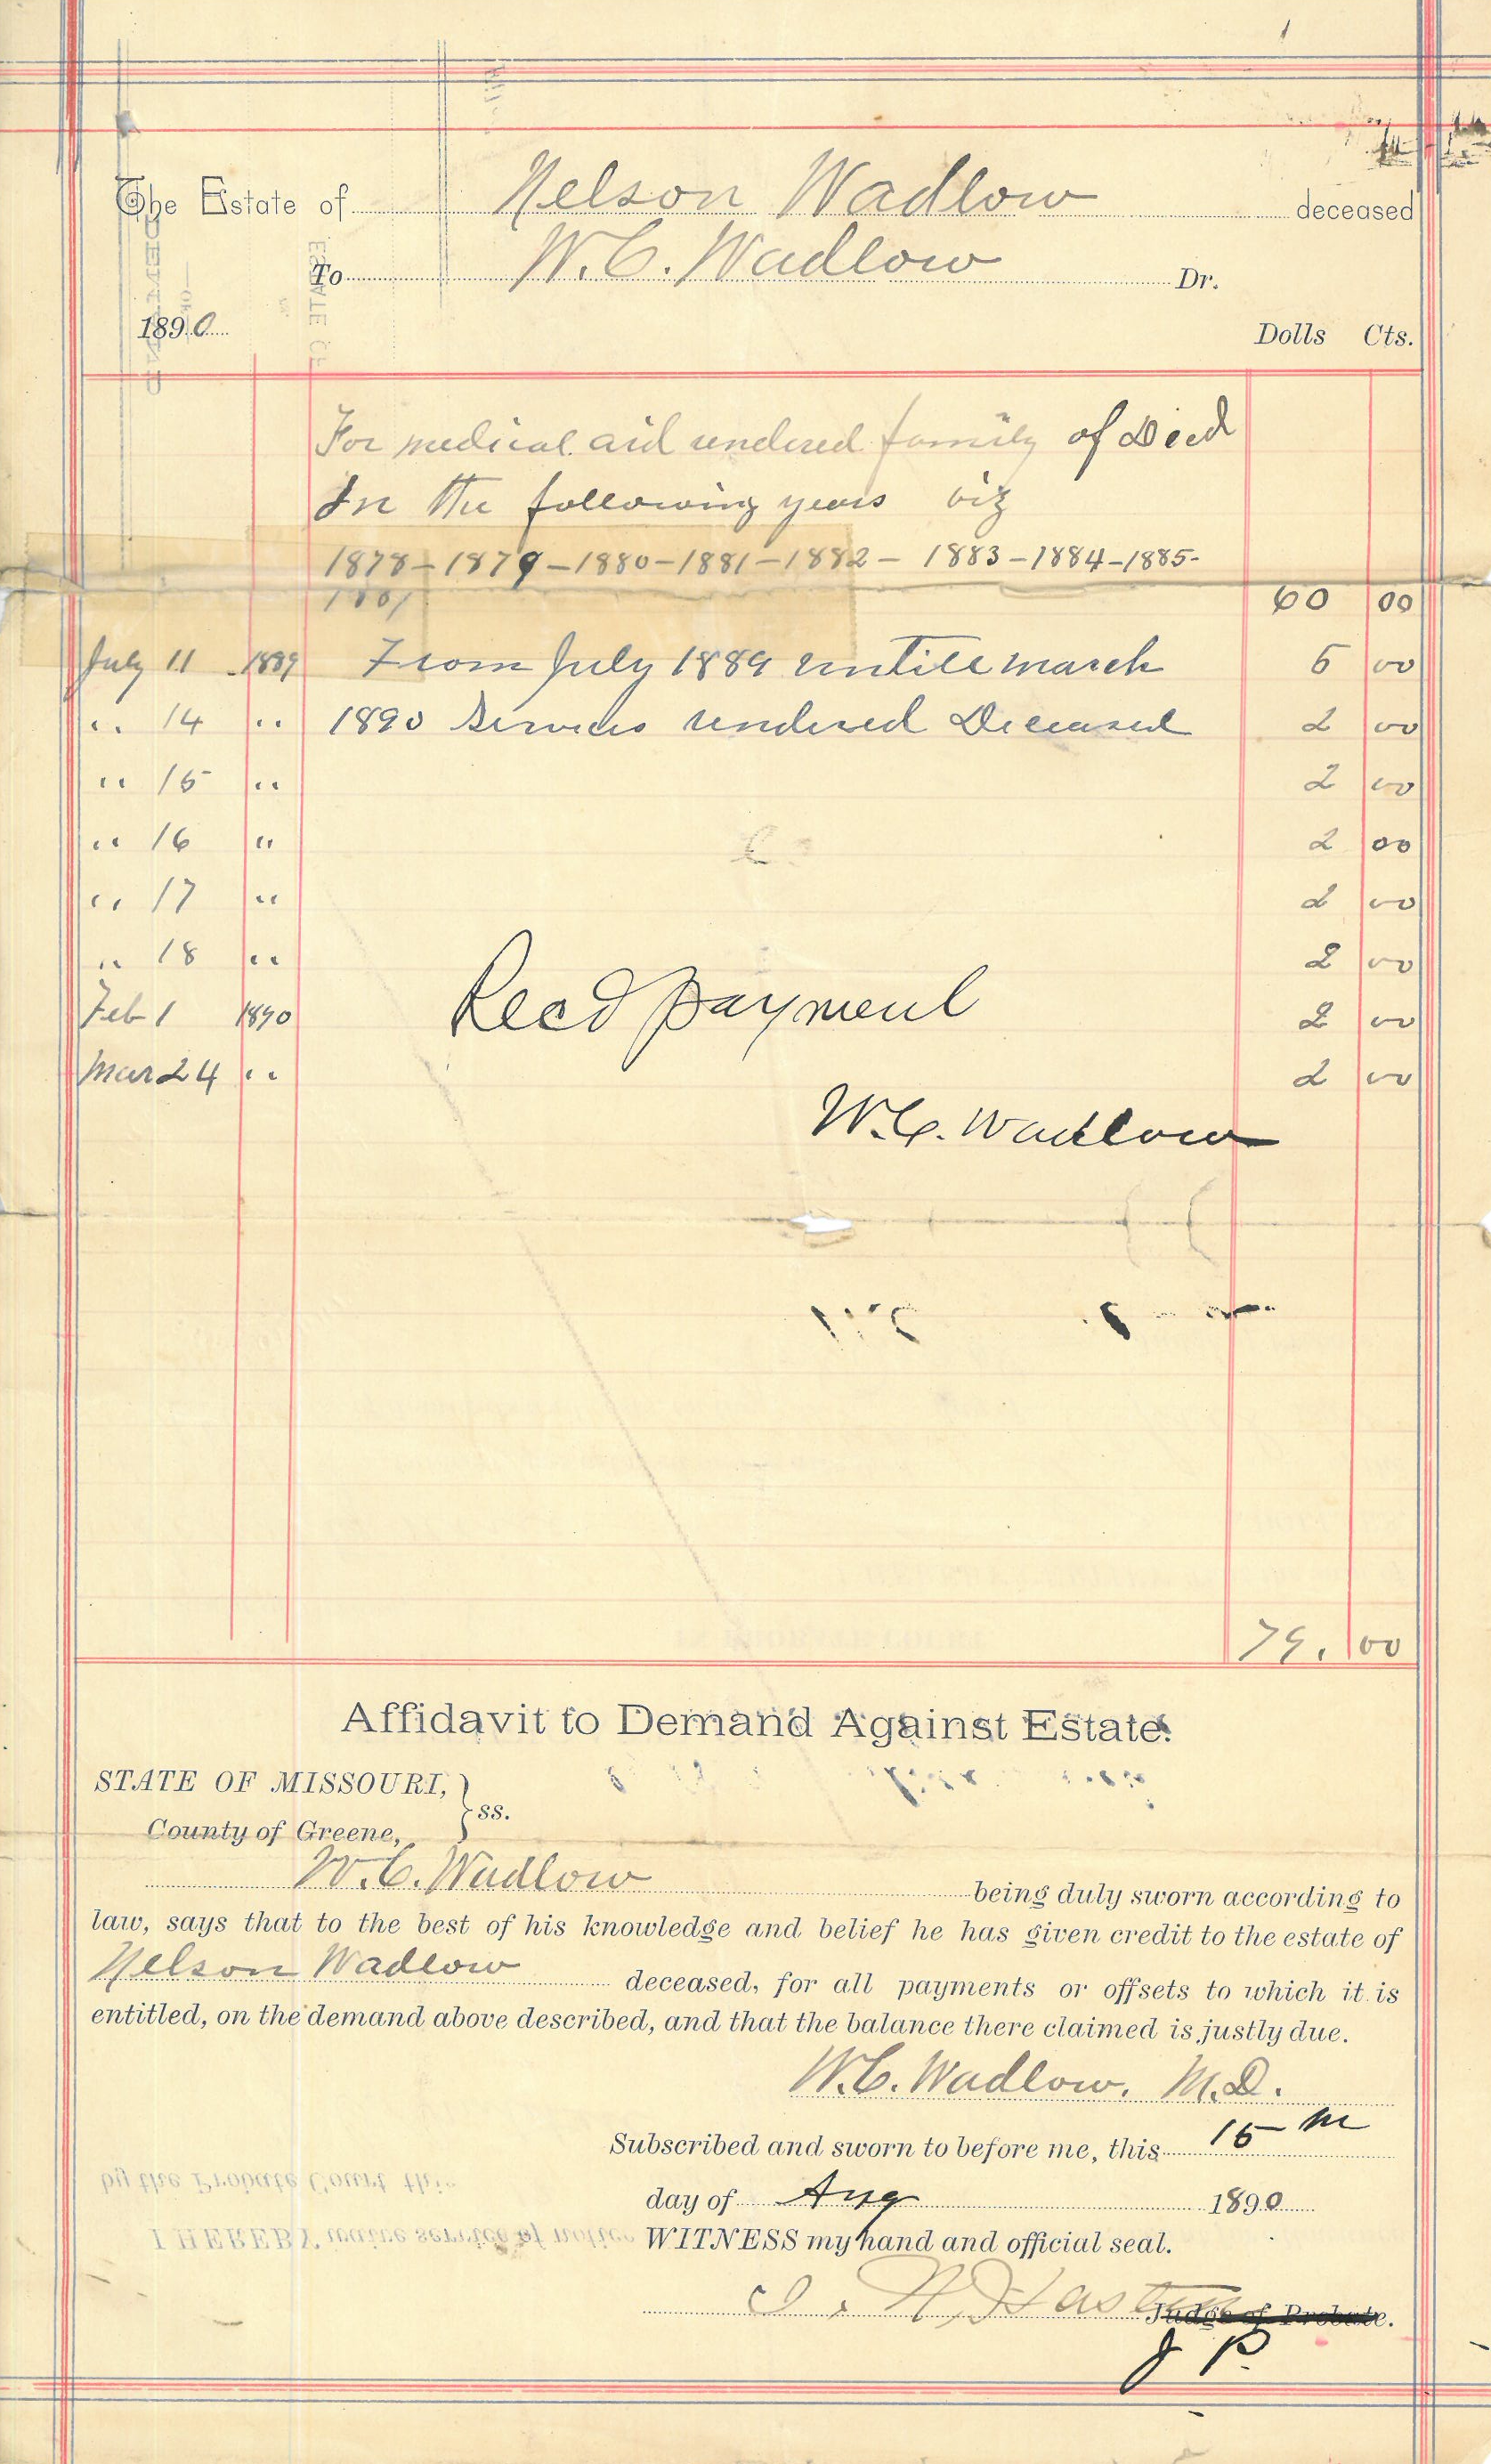 The Estate of Nelson Wadlow deceased
To W. C. Wadlow Dr.
1890 Dolls Cts.
For medical aid rendered family of Decd
In the following years viz
1878 – 1879 – 1880 – 1881 – 1882 – 1883 – 1884 – 1885 -
60 00
July 11 1889 From July 1889 untill march 5 00
" 14 " 1890 Services rendered Deceased 2 00
" 15 " 2 00
" 16 " 2 00
" 17 " 2 00
" 18 " 2 00
Feb 1 1890 Recd payment 2 00
Mar 24 " 2 00
W. C. Wadlow
79. 00
Affidavit to Demand Against Estate.
STATE OF MISSOURI, } ss.
County of Greene,
W. C. Wadlow being duly sworn according to
law, says that to the best of his knowledge and belief he has given credit to the estate of
Nelson Wadlow deceased, for all payments or offsets to which it is
entitled, on the demand above described, and that the balance there claimed is justly due.
W. C. Wadlow, M.D.
Subscribed and sworn to before me, this 15
day of Aug 1890
by the Probate Court this
I HEREBY waive service of notice WITNESS my hand and official seal.
Judge of Probate.
J P.